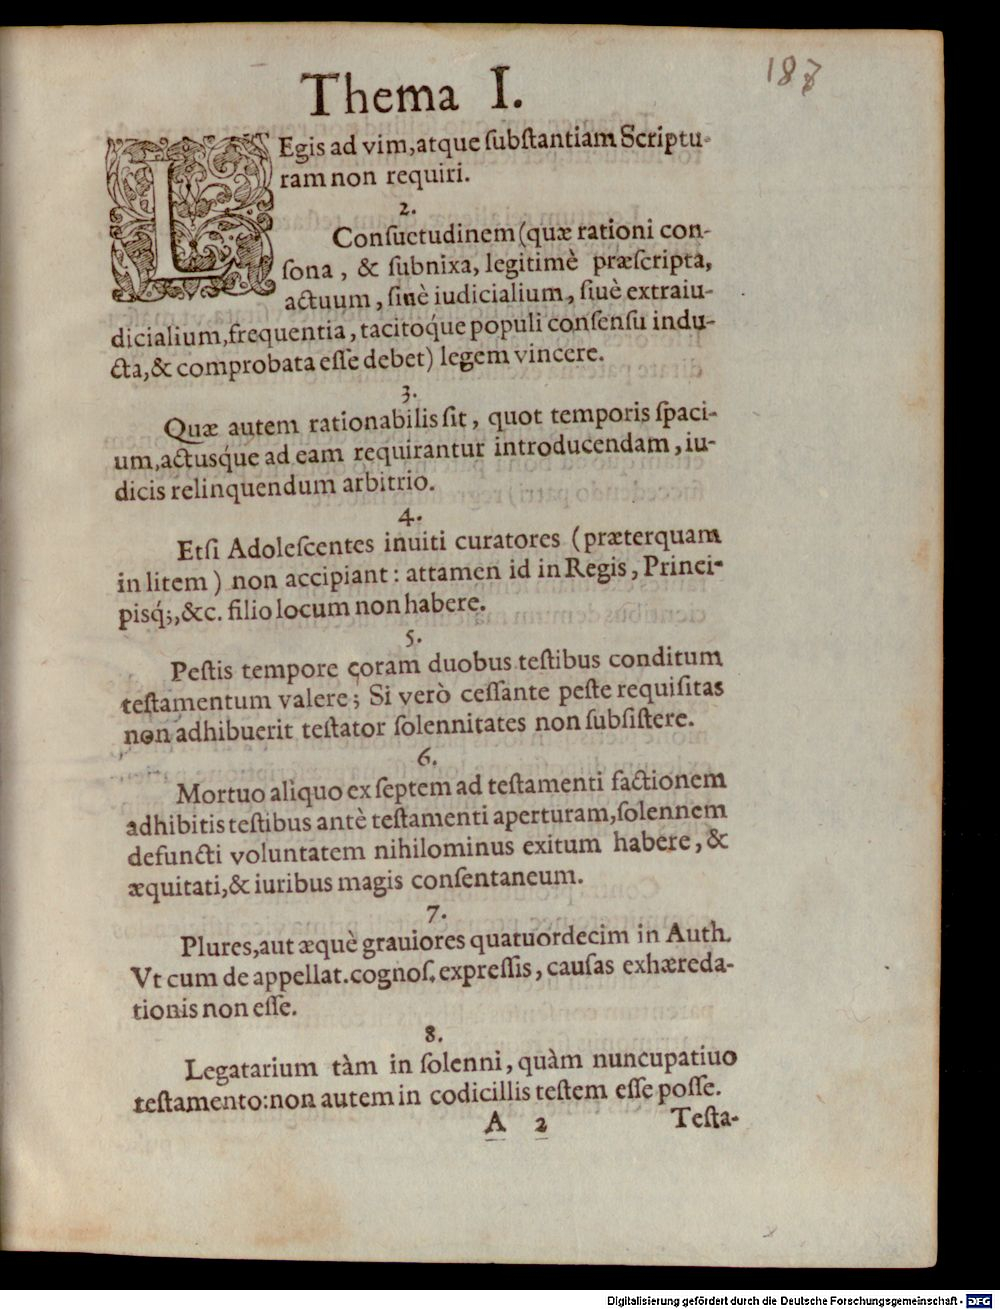 187
Thema I.
LEgis ad vim, atque ſubſtantiam Scriptu-
ram non requiri.
2.
Conſuetudinem (quæ rationi con-
ſona, & ſubnixa, legitimè præſcripta,
actuum, ſiuè iudicialium, ſiuè extraiu-
dicialium, frequentia, tacitoq́ue populi conſenſu indu-
cta, & comprobata eſſe debet) legem vincere.
3.
Quæ autem rationabilis ſit, quot temporis ſpaci-
um, actusq́ue ad eam requirantur introducendam, iu-
dicis relinquendum arbitrio.
4.
Etſi Adoleſcentes inuiti curatores (præterquam
in litem) non accipiant: attamen id in Regis, Princi-
pisq́;, &c. filio locum non habere.
5.
Peſtis tempore coram duobus teſtibus conditum
teſtamentum valere; Si verò ceſſante peſte requiſitas
non adhibuerit teſtator ſolennitates non ſubſiſtere.
6.
Mortuo aliquo ex ſeptem ad teſtamenti factionem
adhibitis teſtibus antè teſtamenti aperturam, ſolennem
defuncti voluntatem nihilominus exitum habere, &
æquitati, & iuribus magis conſentaneum.
7.
Plures, aut æquè grauiores quatuordecim in Auth.
Vt cum de appellat. cognoſ. expreſſis, cauſas exhæreda-
tionis non eſſe.
8.
Legatarium tàm in ſolenni, quàm nuncupatiuo
teſtamento: non autem in codicillis teſtem eſſe poſſe.
A 2 Teſta-
Digitalisierung gefördert durch die Deutsche Forschungsgemeinschaft - DFG